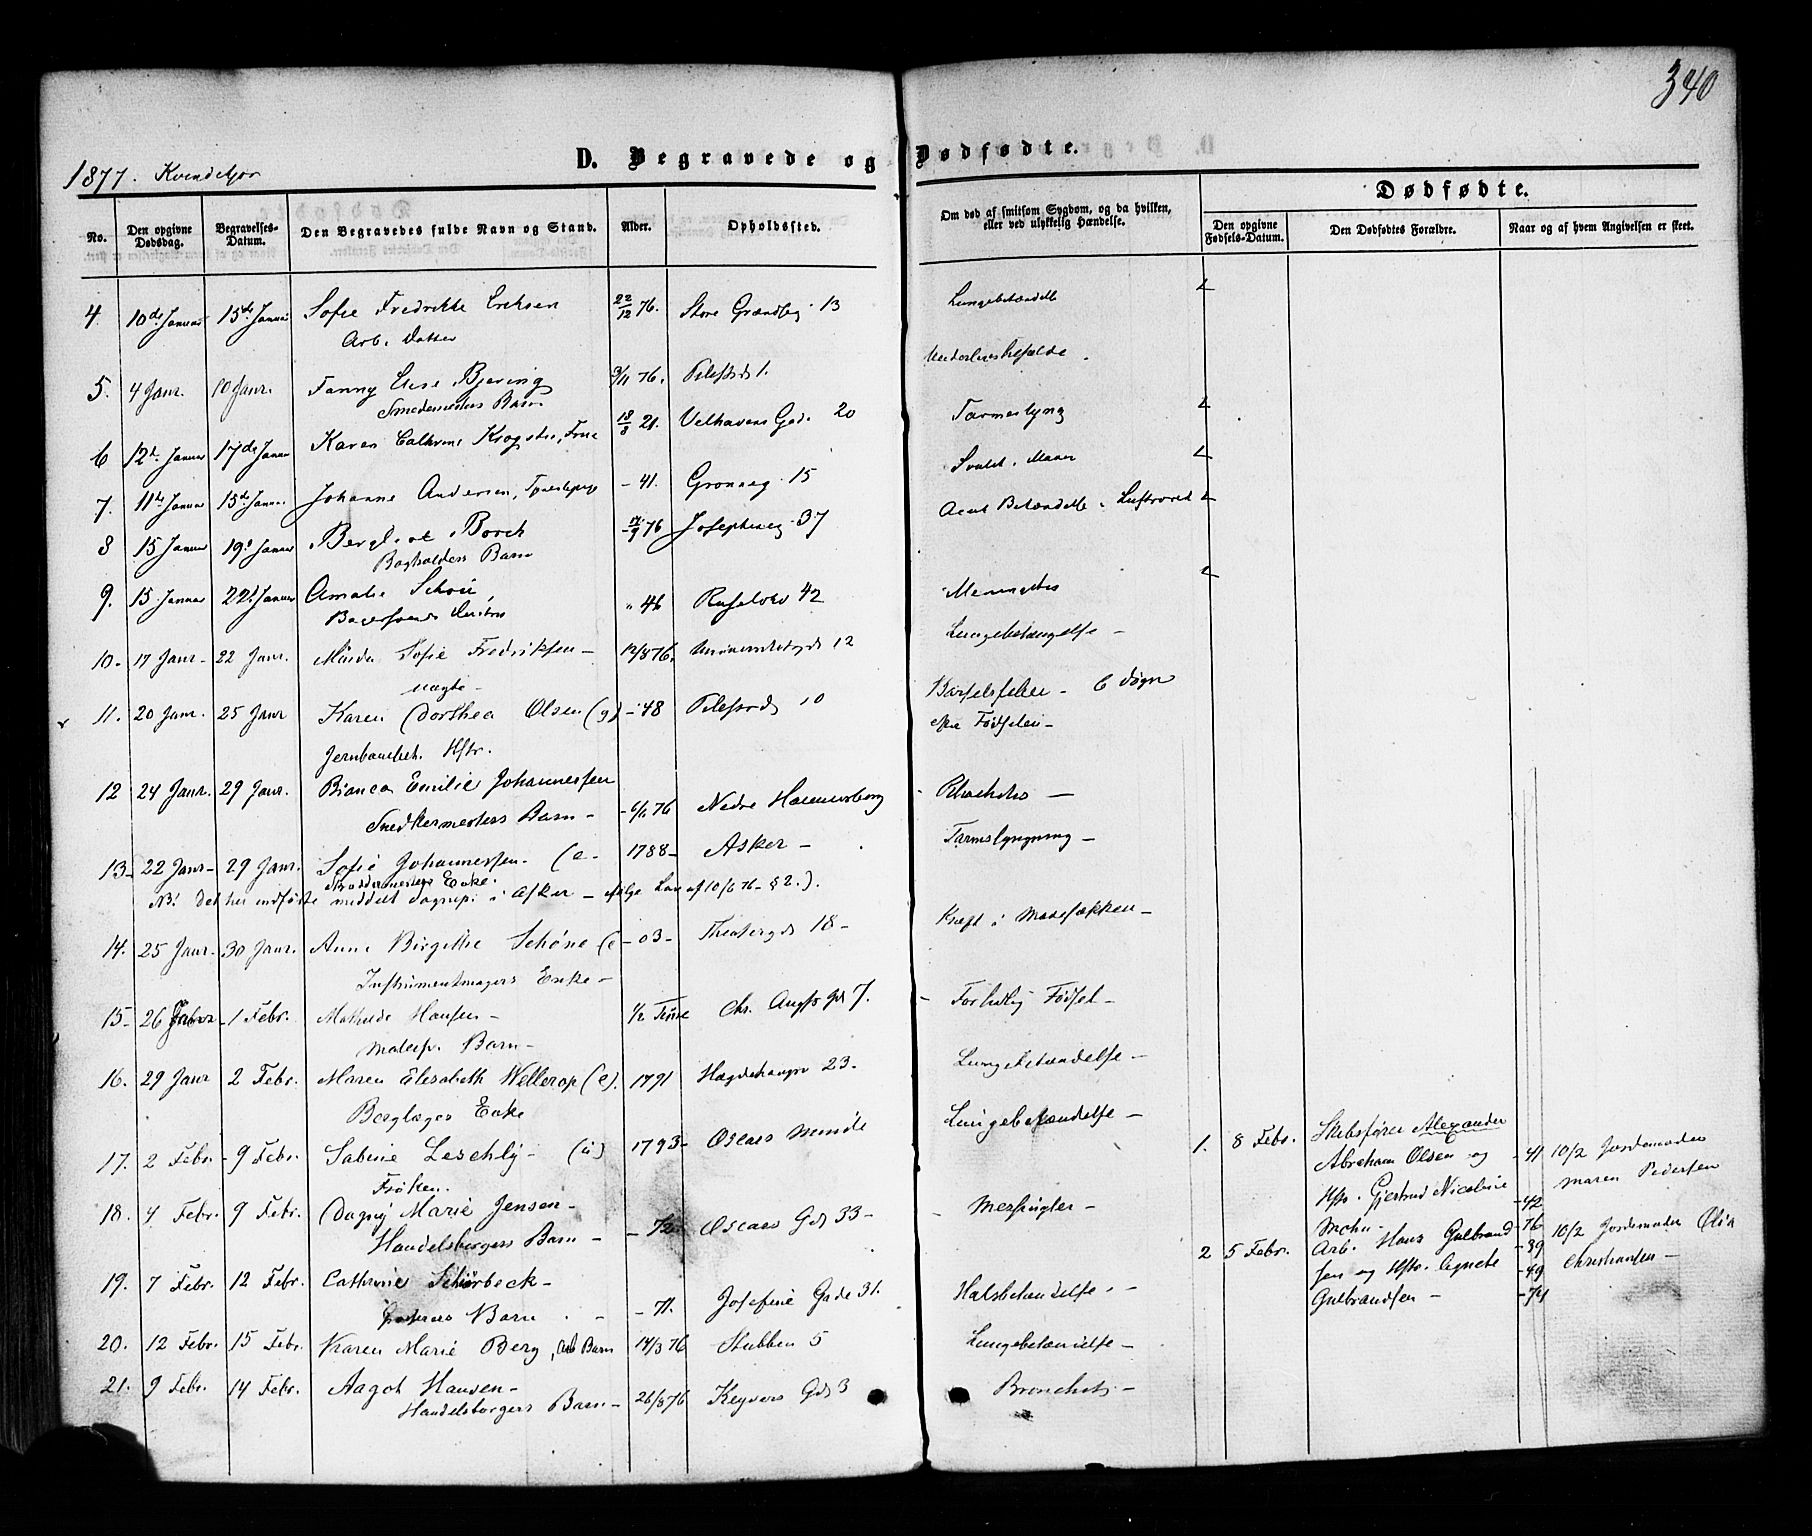 340
1877. Kvindekjøn
D. Begravede og Dødfødte.
No.
Den opgivne Dødsdag.
Begravelses-Datum.
Den Begravedes fulde Navn og Stand.
Alder.
Opholdssted.
Om død af smitsom Sygdom, og da hvilken, eller ved ulykkelig Hændelse.
Dødfødte.
Den opgivne Fødsels-Datum.
Den Dødfødtes Forældre.
Naar og af hvem Angivelsen er skeet.
4. 10de Januar 15de Januar Sofie Fredrikke Eriksen 22/12 76. Store Grændseg 13 Lungebetændelse
Arb. Datter
5. 4 Janr. 10 Janr. Fanny Elise Bjering 3/11 76. Pilestrdt 1. Underlivs
Smedemesters Barn
6 12te Januar 17de Januar Karen Cathrine Krogstie, Frue 13/8 21. Velhavens Gade 20 Tarmeslyng
7. 11te Januar 15de Januar Johanne Andersen, - 41. Grønneg. 15
8 15 Januar 19de Januar Bergliot Borch 76 Josephineg. 37 Acut Betændelse i Luftrøret
Bogholders Barn
9. 15. Januar 22de Januar Amalie Schou, " 46 Ruseløkv 42 Meningitis
10. 17 Janr. 22 Janr. Sofie Fredriksen 12/8 76. Universitetsgd 12 Lungebetændelse
uægte
11. 20 Janr. 25 Janr Karen Dorthea Olsen (g) - 48 Pilestrdt 10 Barselfeber - 6 døgn
efter Fødselen
Jernbanebet. Hstr.
12 24 Janr. 29 Janr. Bianca Emilie Johannessen
Snedkermesters Barn - 6/6 76 Nedre Hammersborg
13 22 Janr 29 Janr. Sofie Johannessen. (e- 1788- Asker - Tarmslyngning
Enke.
NB! Det her indførte meddelt Sognepr. i Asker - ifølge Lov af 10/6 76 - § 2.).
14. 25 Janr. 30 Janr. Anne Birgitte Schøne (e - 03 - Theatergd 18 - Kræft i Mavesækken
Instrumentmagers Enke -
15 26 Januar 1 Febr. Mathilde Hansen - 1/2 Time Chr. Augsts Gd 7. For tidlig Fødsel
Malersv. Barn -
16. 29 Janr 2 Febr. Maren Elisabeth Wellerop (e). 1791 Hægdehaugsv 23. Lungebetændelse
Berglæges Enke
17. 2 Febr. 9 Febr. Sabine Leschly - (u) 1793 - Oscars Minde Lungebetændelse
Frøken.
18. 4 Febr. 9 Febr. Dagny Marie Jensen - Oscars Gd 33 - Meslingler -
Handelsborgers Barn -
19. 7 Febr. 12 Febr. Cathrine Schørbeck -
Barn - 71. Josefine Gade 31. Halsbetændelse -
20. 12 Febr. 15 Febr. Karen Marie Berg, Arb Barn 14/3 76 Stubben 5 Lungebetændelse -
21. 9 Febr. 14 Febr. Aagot Hansen -
Handelsborgers Barn - 26/8 76 Keysers Gd 3 Bronchitis -
1. 8 Febr. Skibsfører Alexander
Abraham Olsen og - 41 10/2 Jordemoder
Hstr. Gjertrud Nicoline - 42 Maren Pedersen
2 5 Febr. Arb. Hans Gulbrand - 39 10/2 Jordemoder
sen og Hstr. Agnete - 49 Christiansen -
Gulbrandsen -